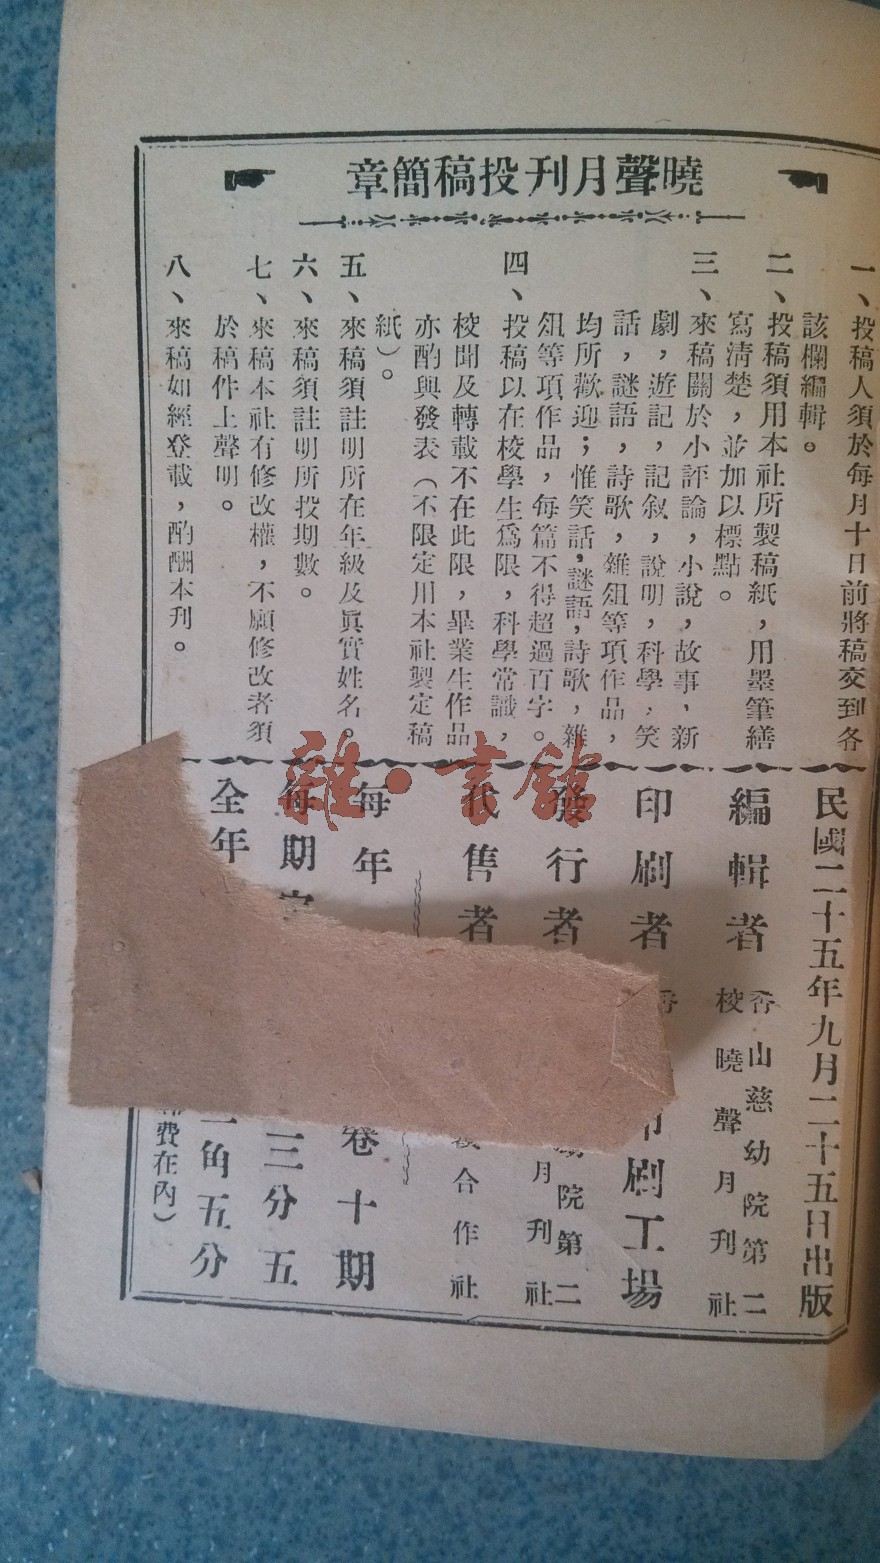 曉聲月刊投稿簡章
一、投稿人須於每月十日前將稿交到各
該欄編輯。
二、投稿須用本社所製稿紙，用墨筆繕
寫清楚，並加以標點。
三、來稿關於小評論，小說，故事，新
劇，遊記，記叙，說明，科學，笑
話，謎語，詩歌，雜俎等項作品，
均所歡迎；惟笑話，謎語，詩歌，雜
俎等項作品，每篇不得超過百字。
四、投稿以在校學生爲限，科學常識，
校聞及轉載不在此限，畢業生作品
亦酌與發表（不限定用本社製定稿
紙）。
五、來稿須註明所在年級及眞實姓名。
六、來稿須註明所投期數。
七、來稿本社有修改權，不願修改者須
於稿件上聲明。
八、來稿如經登載，酌酬本刊。
民國二十五年九月二十五日出版
編輯者 香山慈幼院第二
校曉聲月刊社
印刷者 香 印刷工場
發行者 幼院第二
月刊社
代售者 合作社
每年 卷十期
每期 三分五
全年 二角五分
費在內）
雜·書館